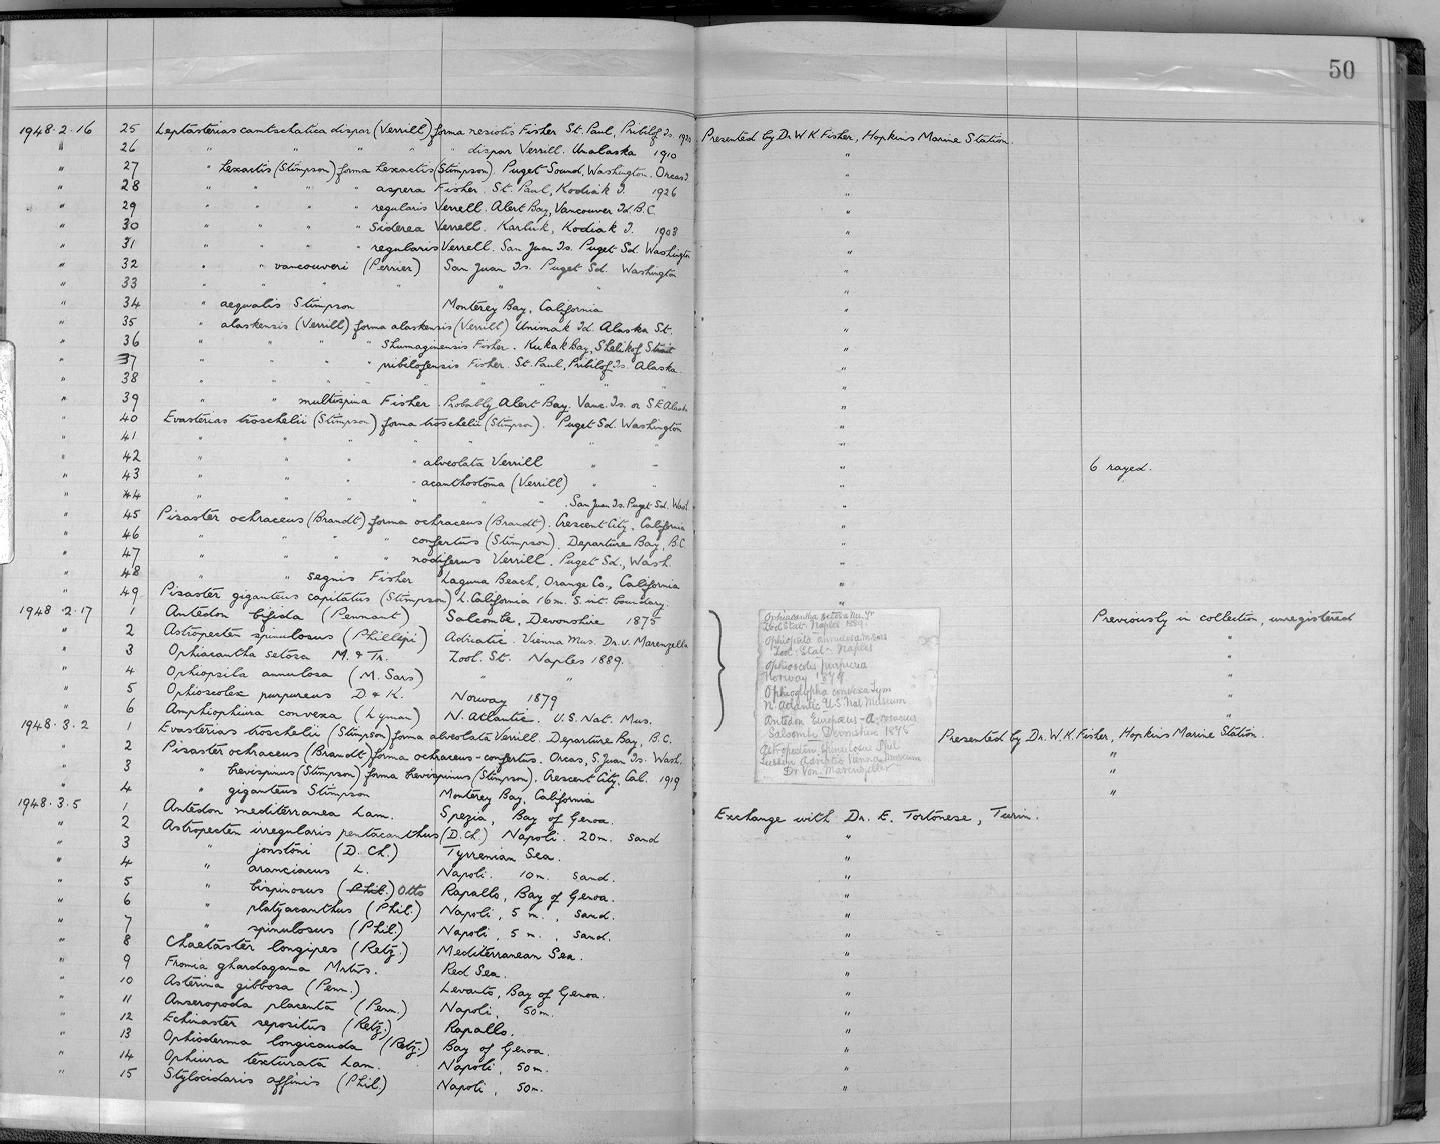 50
1948·2·16 25 Leptasterias camtschatica dispar (Verrill) forma nesiotis Fisher St. Paul, Pribilof Is. Presented by Dr W K Fisher, Hopkins Marine Station.
" 26 " " " " " dispar Verrill. Unalaska 1910 "
" 27 " hexactis (Stimpson) forma hexactis (Stimpson). Puget Sound, Washington. Orcas I. "
" 28 " " " " aspera Fisher. St. Paul, Kodiak I. 1926 "
" 29 " " " " regularis Verrill. Alert Bay, Vancouver Id. B.C. "
" 30 " " " " siderea Verrill. Karluk, Kodiak I. 1903 "
" 31 " " " " regularis Verrill. San Juan Is. Puget Sd. Washington "
" 32 " " vancouveri (Perrier) San Juan Is. Puget Sd. Washington "
" 33 " " " " " "
" 34 " aequalis Stimpson Monterey Bay, California "
" 35 " alaskensis (Verrill) forma alaskensis (Verrill) Unimak Id. Alaska St. "
" 36 " " " " shumaginensis Fisher. Kukak Bay, Shelikof Strait "
" 37 " " " " pribilofensis Fisher. St. Paul, Pribilof Is. Alaska "
" 38 " " " " " " " " "
" 39 " " multispina Fisher. Probably Alert Bay. Vanc. Is. or S.E. Alaska "
" 40 Evasterias troschelii (Stimpson) forma troschelii (Stimpson). Puget Sd. Washington "
" 41 " " " " " " "
" 42 " " " " alveolata Verrill " " " 6 rayed.
" 43 " " " " acanthostoma (Verrill) " " "
" 44 " " " " " " San Juan Is. Puget Sd. Wash. "
" 45 Pisaster ochraceus (Brandt) forma ochraceus (Brandt). Crescent City, California "
" 46 " " " " confertus (Stimpson). Departure Bay, B.C. "
" 47 " " " " nodiferus Verrill. Puget Sd., Wash. "
" 48 " " segnis Fisher Laguna Beach, Orange Co., California "
" 49 Pisaster giganteus capitatus (Stimpson) L. California 16 m. S. int. boundary. "
1948·2·17 1 Antedon bifida (Pennant) Salcombe, Devonshire 1875 Previously in collection, unregistered
" 2 Astropecten spinulosus (Phillipi) Adriatic. Vienna Mus. Dr. v. Marenzelle "
" 3 Ophiacantha setosa M. & Tr. Zool. St. Naples 1889. "
" 4 Ophiopsila annulosa (M. Sars) " " "
" 5 Ophioscolex purpureus D & K. Norway 1879 "
" 6 Amphiophiura convexa (Lyman) N. Atlantic. U.S. Nat. Mus. "
Ophiacantha setosa Mu. Tr
Zool. Stat. Naples 1889
Ophiopsila annulosa M Sars
Zool. Stat. Naples
Ophioscolex purpurea
Norway 1879
Ophioglypha convexa Lym
N. Atlantic U S Nat. Museum
Antedon Europaeus = A. rosaceus
Salcombe Devonshire 1875
Astropecten spinulosus Phil
Adriatic Vienna Museum
Dr Von. Marenzeller
1948·3·2 1 Evasterias troschelii (Stimpson) forma alveolata Verrill. Departure Bay, B.C. Presented by Dr. W. K. Fisher, Hopkins Marine Station.
" 2 Pisaster ochraceus (Brandt) forma ochraceus-confertus. Orcas, S. Juan Is. Wash. "
" 3 " brevispinus (Stimpson) forma brevispinus (Stimpson). Crescent City, Cal. 1919 "
" 4 " giganteus Stimpson Monterey Bay, California "
1948·3·5 1 Antedon mediterranea Lam. Spezia, Bay of Genoa. Exchange with Dr. E. Tortonese, Turin.
" 2 Astropecten irregularis pentacanthus (D. Ch.) Napoli. 20 m. sand "
" 3 " jonstoni (D. Ch.) Tyrrenian Sea. "
" 4 " aranciacus L. Napoli. 10 m. sand. "
" 5 " bispinosus (Phil.) Otto Rapallo, Bay of Genoa. "
" 6 " platyacanthus (Phil.) Napoli, 5 m., sand. "
" 7 " spinulosus (Phil.) Napoli, 5 m., sand. "
" 8 Chaetaster longipes (Retz.) Mediterranean Sea. "
" 9 Fromia ghardaqana Mrtns. Red Sea. "
" 10 Asterina gibbosa (Penn.) Levanto, Bay of Genoa. "
" 11 Anseropoda placenta (Penn.) Napoli, 50 m. "
" 12 Echinaster sepositus (Retz.) Rapallo. "
" 13 Ophioderma longicauda (Retz.) Bay of Genoa. "
" 14 Ophiura texturata Lam. Napoli, 50 m. "
" 15 Stylocidaris affinis (Phil.) Napoli, 50 m. "